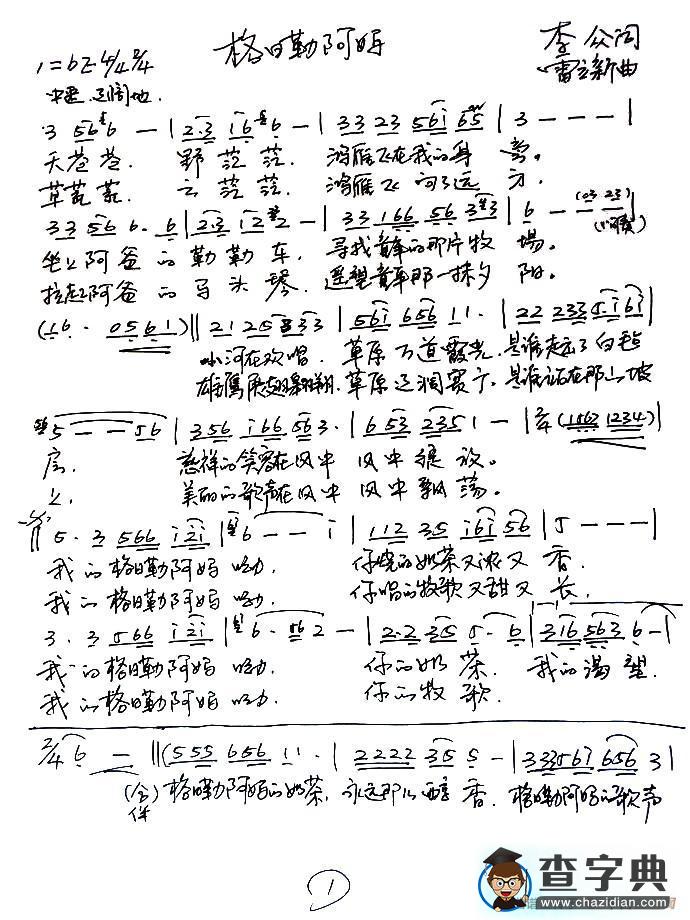 格日勒阿妈
李众间
1=bE 4/4 2/4
雷立新曲
中速 辽阔地.
3 56 6 — | 2·3 1 6 6 — | 33 23 561 65 | 3 — — — |
天苍苍. 野茫茫. 鸿雁飞在我的身旁。
草荒荒. 云茫茫. 鸿雁飞向了远方.
33 56 6· 6 | 2·3 12 2 — | 33 166 56 3 3 | 6 — — (03 23) |
坐上阿爸的勒勒车, 寻找童年的那片牧場。
拉起阿爸的马头琴. 遥望童年那一抹夕阳。
(16· 0561) || 2125 333 | 561 656 11· | 22 233 5·163 |
小河在欢唱. 草原万道霞光. 是谁走出了白毡
雄鹰展翅翱翔. 草原辽阔宽广. 是谁站在那山坡
5 — — 56 | 356 166 56 3· | 6 53 235 1 — | 2/4 (1563 1234) |
房. 慈祥的笑容在风中 风中绽放。
上. 美丽的歌声在风中 风中飘荡。
5· 3 566 121 | 6 — — 1 | 112 35 161 56 | 5 — — — |
我的格日勒阿妈 呦. 你烧的奶茶又浓又香.
我的格日勒阿妈 呦. 你唱的牧歌又甜又长.
3· 3 566 121 | 6· 56 2 — | 2·2 35 5· 6 | 316 563 6 — |
我的格日勒阿妈 呦. 你的奶茶. 我的渴望.
我的格日勒阿妈 呦. 你的牧歌.
2/4 6 — || (555 656 11· | 2222 35 5 — | 333567 656 3 |
(合) 格日勒阿妈的奶茶, 永远那么醇香. 格日勒阿妈的歌声
伴
①
查字典
www.chazidian.com